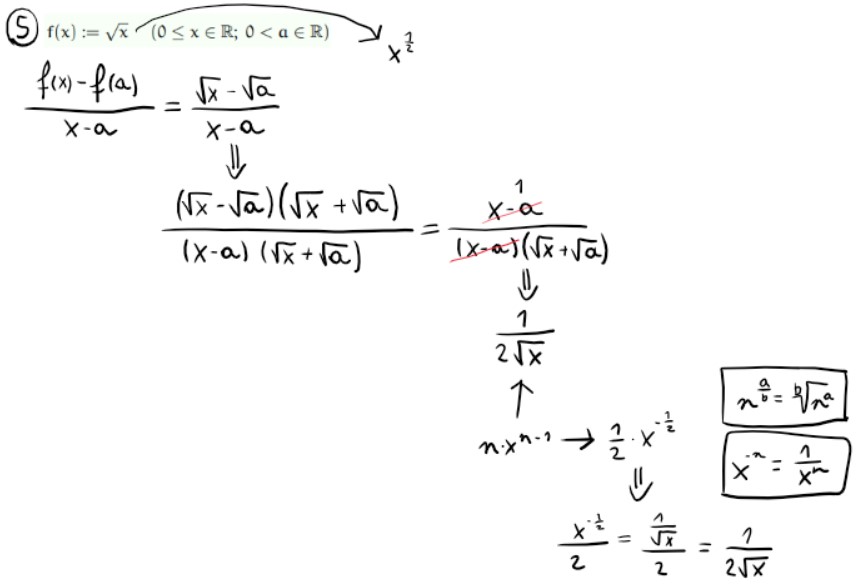 ⑤ f(x) := √x (0 ≤ x ∈ ℝ; 0 < a ∈ ℝ) → x^(1/2)
(f(x) - f(a))/(x - a) = (√x - √a)/(x - a)
⇓
((√x - √a)(√x + √a))/((x - a)(√x + √a)) = (x - a)/((x - a)(√x + √a)) 1
⇓
1/(2√x)
↑
n·x^(n-1) → 1/2 · x^(-1/2)
⇓
x^(-1/2)/2 = (1/√x)/2 = 1/(2√x)
n^(a/b) = ᵇ√(n^a)
x^(-n) = 1/x^n